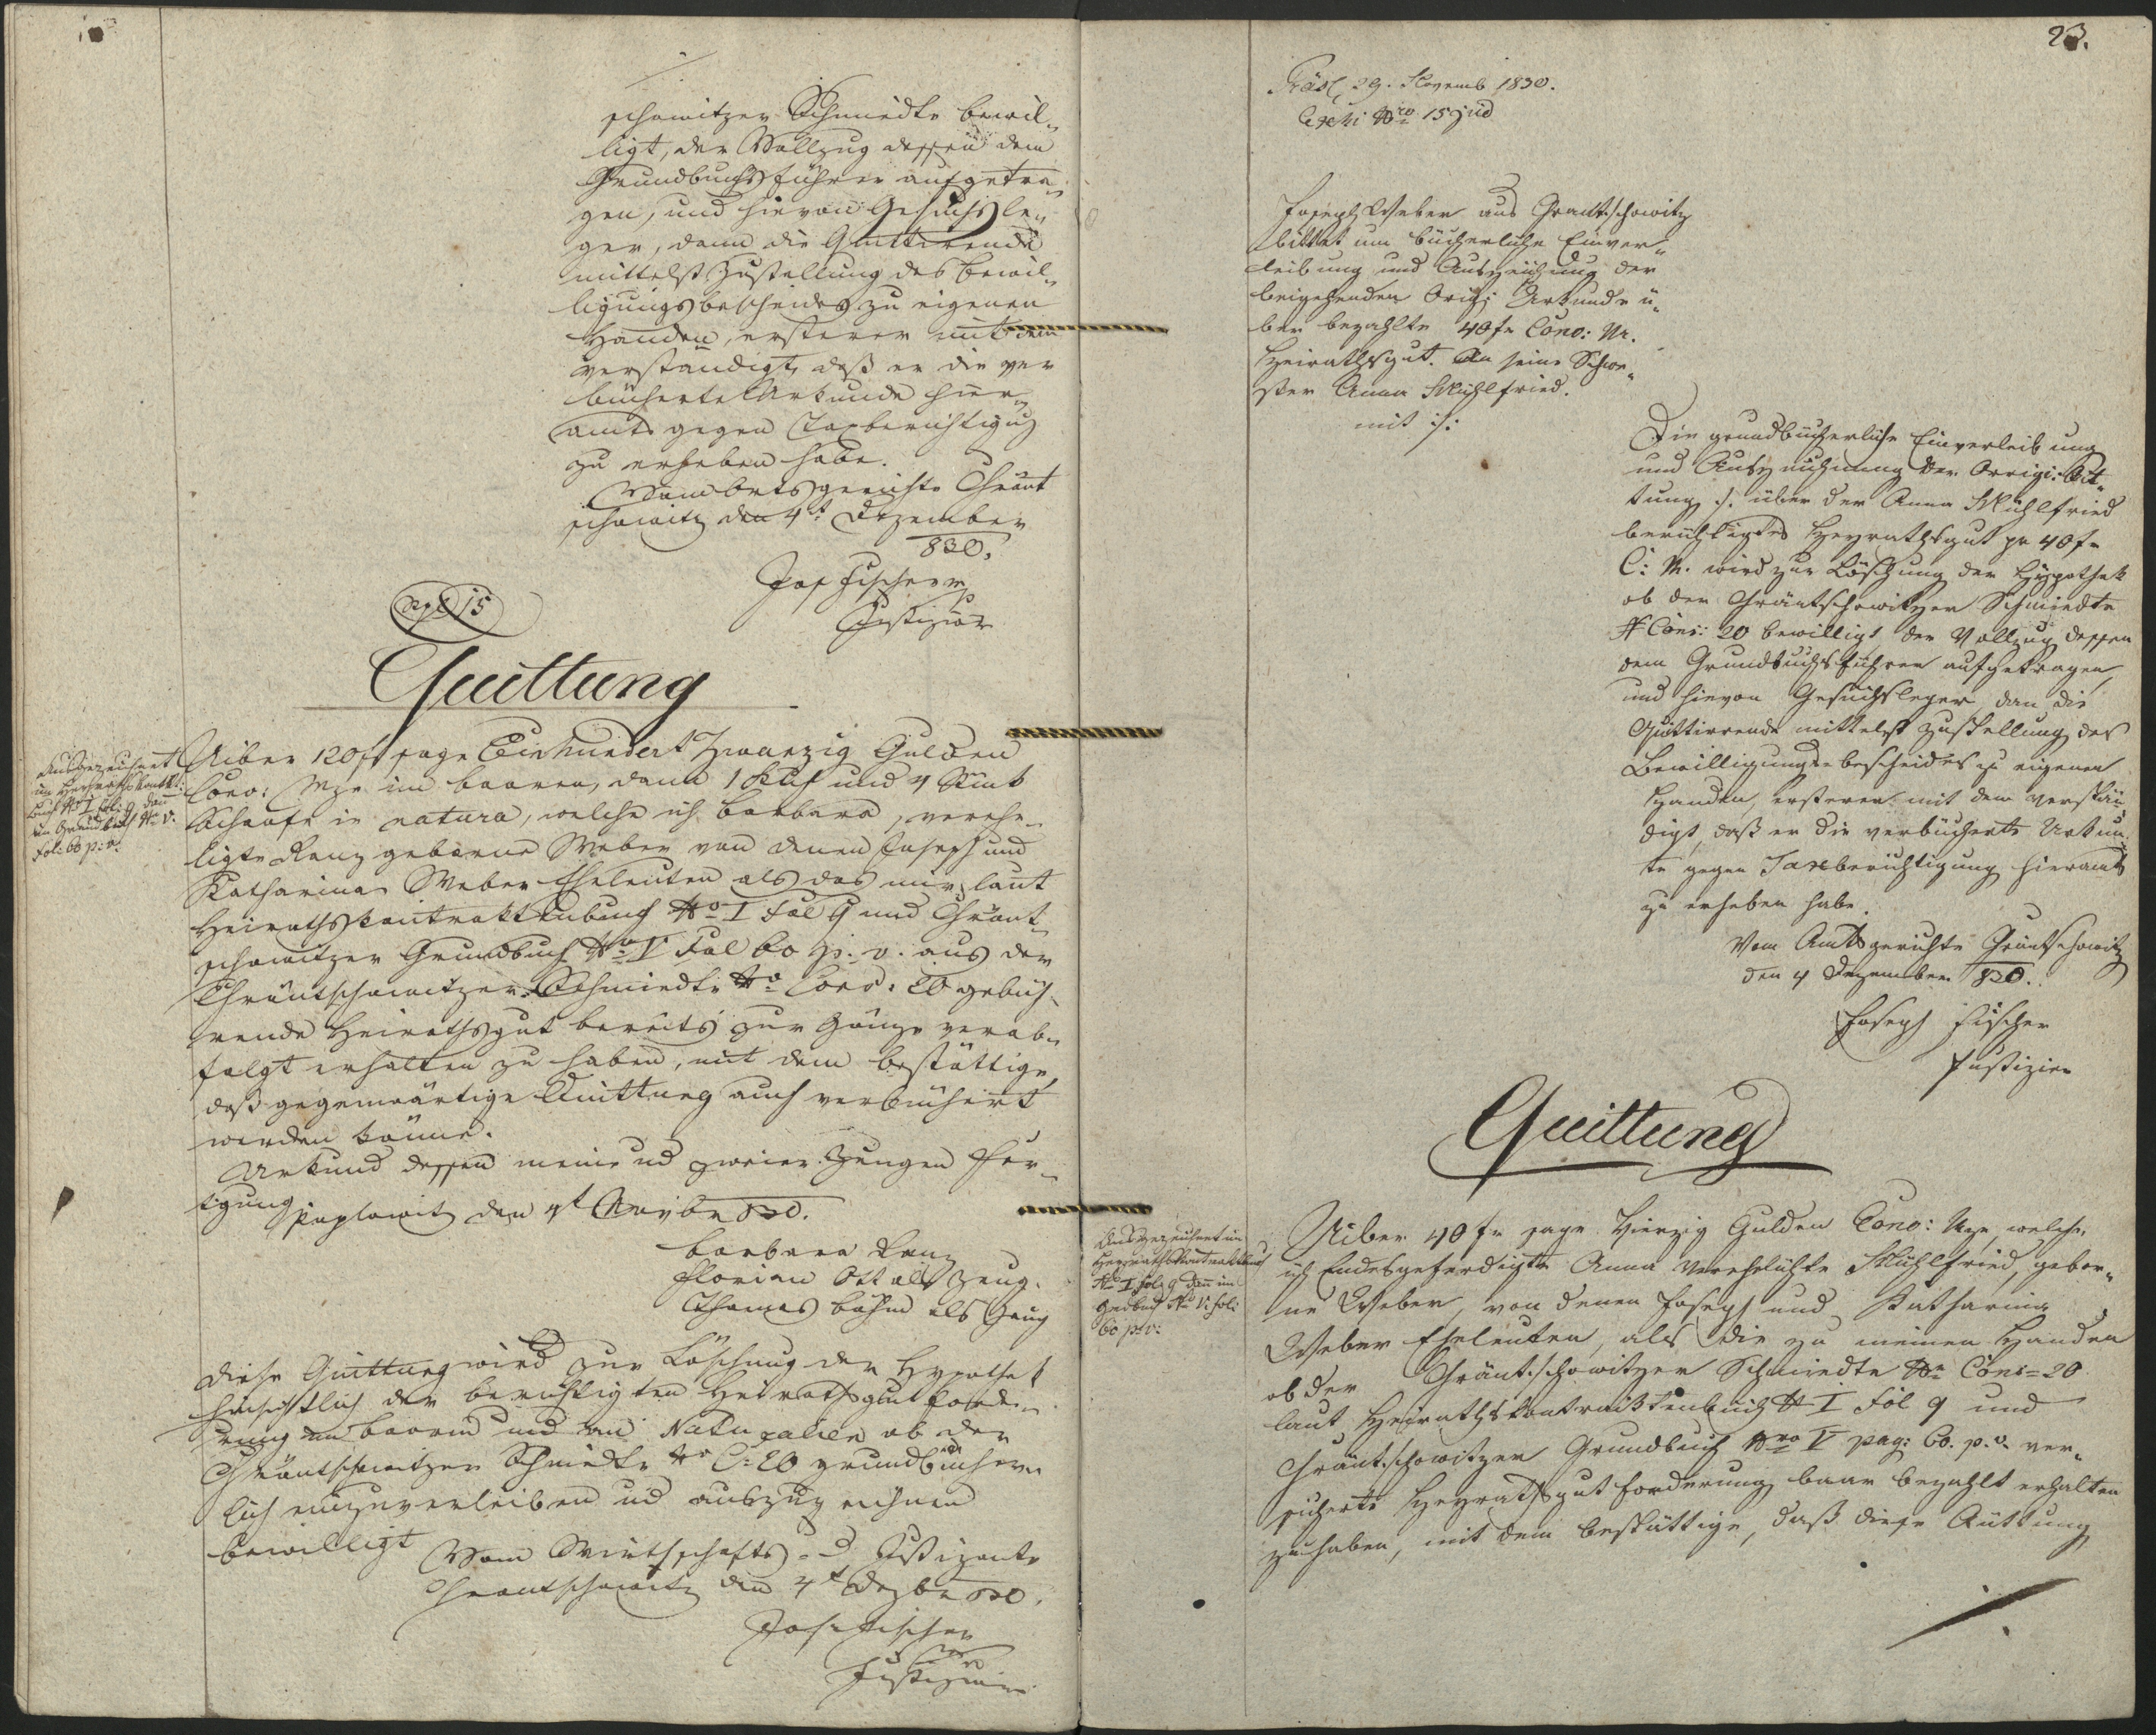 schowitzer Schmiedte bewil„
ligt, der Vollzug dessen dem
Grundbuchsführer aufgetra„
gen, und hievon Gesuchsle„
ger, dann die Quittirende
mittelst Zustellung des bewil„
ligungsbescheides zu eigenen
Handen, ersterer mit dem
verständigt, daß er die ver
bücherte Urkunde hier„
amts gegen Taxberichtigug
zu erheben habe.
Vom Amtsgerichte Chränt
schowitz den 4t Dezember
830.
Jos Fischer
Justiziär
15
Quittung
Uiber 120 f sage Einhundert Zwanzig Gulden
Conv: Mze im baaren, dann 1 Kuh und 4 Stück
Schaafe in natura, welche ich Barbara, verehe„
ligte Ranz geborne Weber von denen Joseph und
Katharina Weber Eheleuten als das mir laut
Heirathskontraktenbuch No I Fol 9 und Chränt„
schowitzer Grundbuch No V Fol 60 p. v. aus der
Chräntschowitzer Schmiedte No Cons: 20 gebüh„
rende Heirathsgut bereits zur Gänze verab„
folgt erhalten zu haben, mit dem bestättige,
daß gegenwärtige Quittung auch verbüchert
werden könne.
Urkund dessen meine ud zweier Zeugen Fer„
tigung den 4t 830.
Barbara Ranz
Florian Ott als Zeug.
Thomas Böhm als Zeug
Ausgezeichnet
im Heyraths Kontkt:
Buch No I Fol: 9 dan
im Grundbuch No V.
Fol: 60 p: v.
Diese Quittung wird zur Löschung der Hypothek
hinsichtlich der berichtigten Heirathsgut forde„
rung an baarem und an Naturalien ob der
Chräntschowitzer Schmiedte No C: 20 grundbücher„
lich einzuverleiben ud auszuzeichnen
bewilligt
Vom Wirthschafts - Justizamte
Chrantschowitz den 4t Dezbr 830.
Jos. Fischer
Justiziär
23.
Präs. 29. Novemb 1830.
Exhi Nro 15 jud
Joseph Weber aus Chrantschowitz
bittet um bücherliche Einver„
leibung und Auszeichnug der
beigehenden Origi Urkunde ü„
ber bezahlte 40 fr Conv: M.
Heirathsgut. An seine Schwe„
ster Anna Mühlfried.
mit :/:
Die grundbücherliche Einverleibung
und Auszeichnung der Orrigi: Qit„
tung :/. über der Anna Mühlfried
berichtigtes Heyrathsgut pr 40 fr
C: M. wird zur Löschung der Hypothek
ob der Chräntschowitzer Schmiedte
N Cons: 20 bewilligt der Vollzug dessen
dem Grundbuchsführer aufgetragen,
und hievon Gesuchsleger dan die
Quittirende mittelst Zustellung des
Bewilligungs-bescheides zu eigenen
Handen, ersterer mit dem verstän„
digt, daß er die verbücherte Urkun„
te gegen Taxeberichtigung hieramts
zu erheben habe.
Vom Amtsgerichte Chräntschowitz
den 4 Dezember 830.
Joseph Fischer
Justiziär
Quittung
Uiber 40 fr sage Vierzig Gulden Conv: Mze, welche
ich Endesgeferdigte Anna verehelichte Mühlfried, gebor„
ne Weber, von denen Joseph und Katharina
Weber Eheleuten, als die zu meinen Handen
ob der Chräntschowitzer Schmiedte No Cons = 20
laut Heirathskontraktenbuch N I Fol 9 und
Chräntschowitzer Grundbuch Nro V pag: 60. p. v. ver„
sicherte Heyrathsgut forderung baar bezahlt erhalten
zu haben, mit dem bestättige, daß diese Quittung
Ausgezeichnet im
Heyraths Kontraktenbuch
No I Fol: 9 dan im
Grdbuch No V. Fol:
60 p: v: